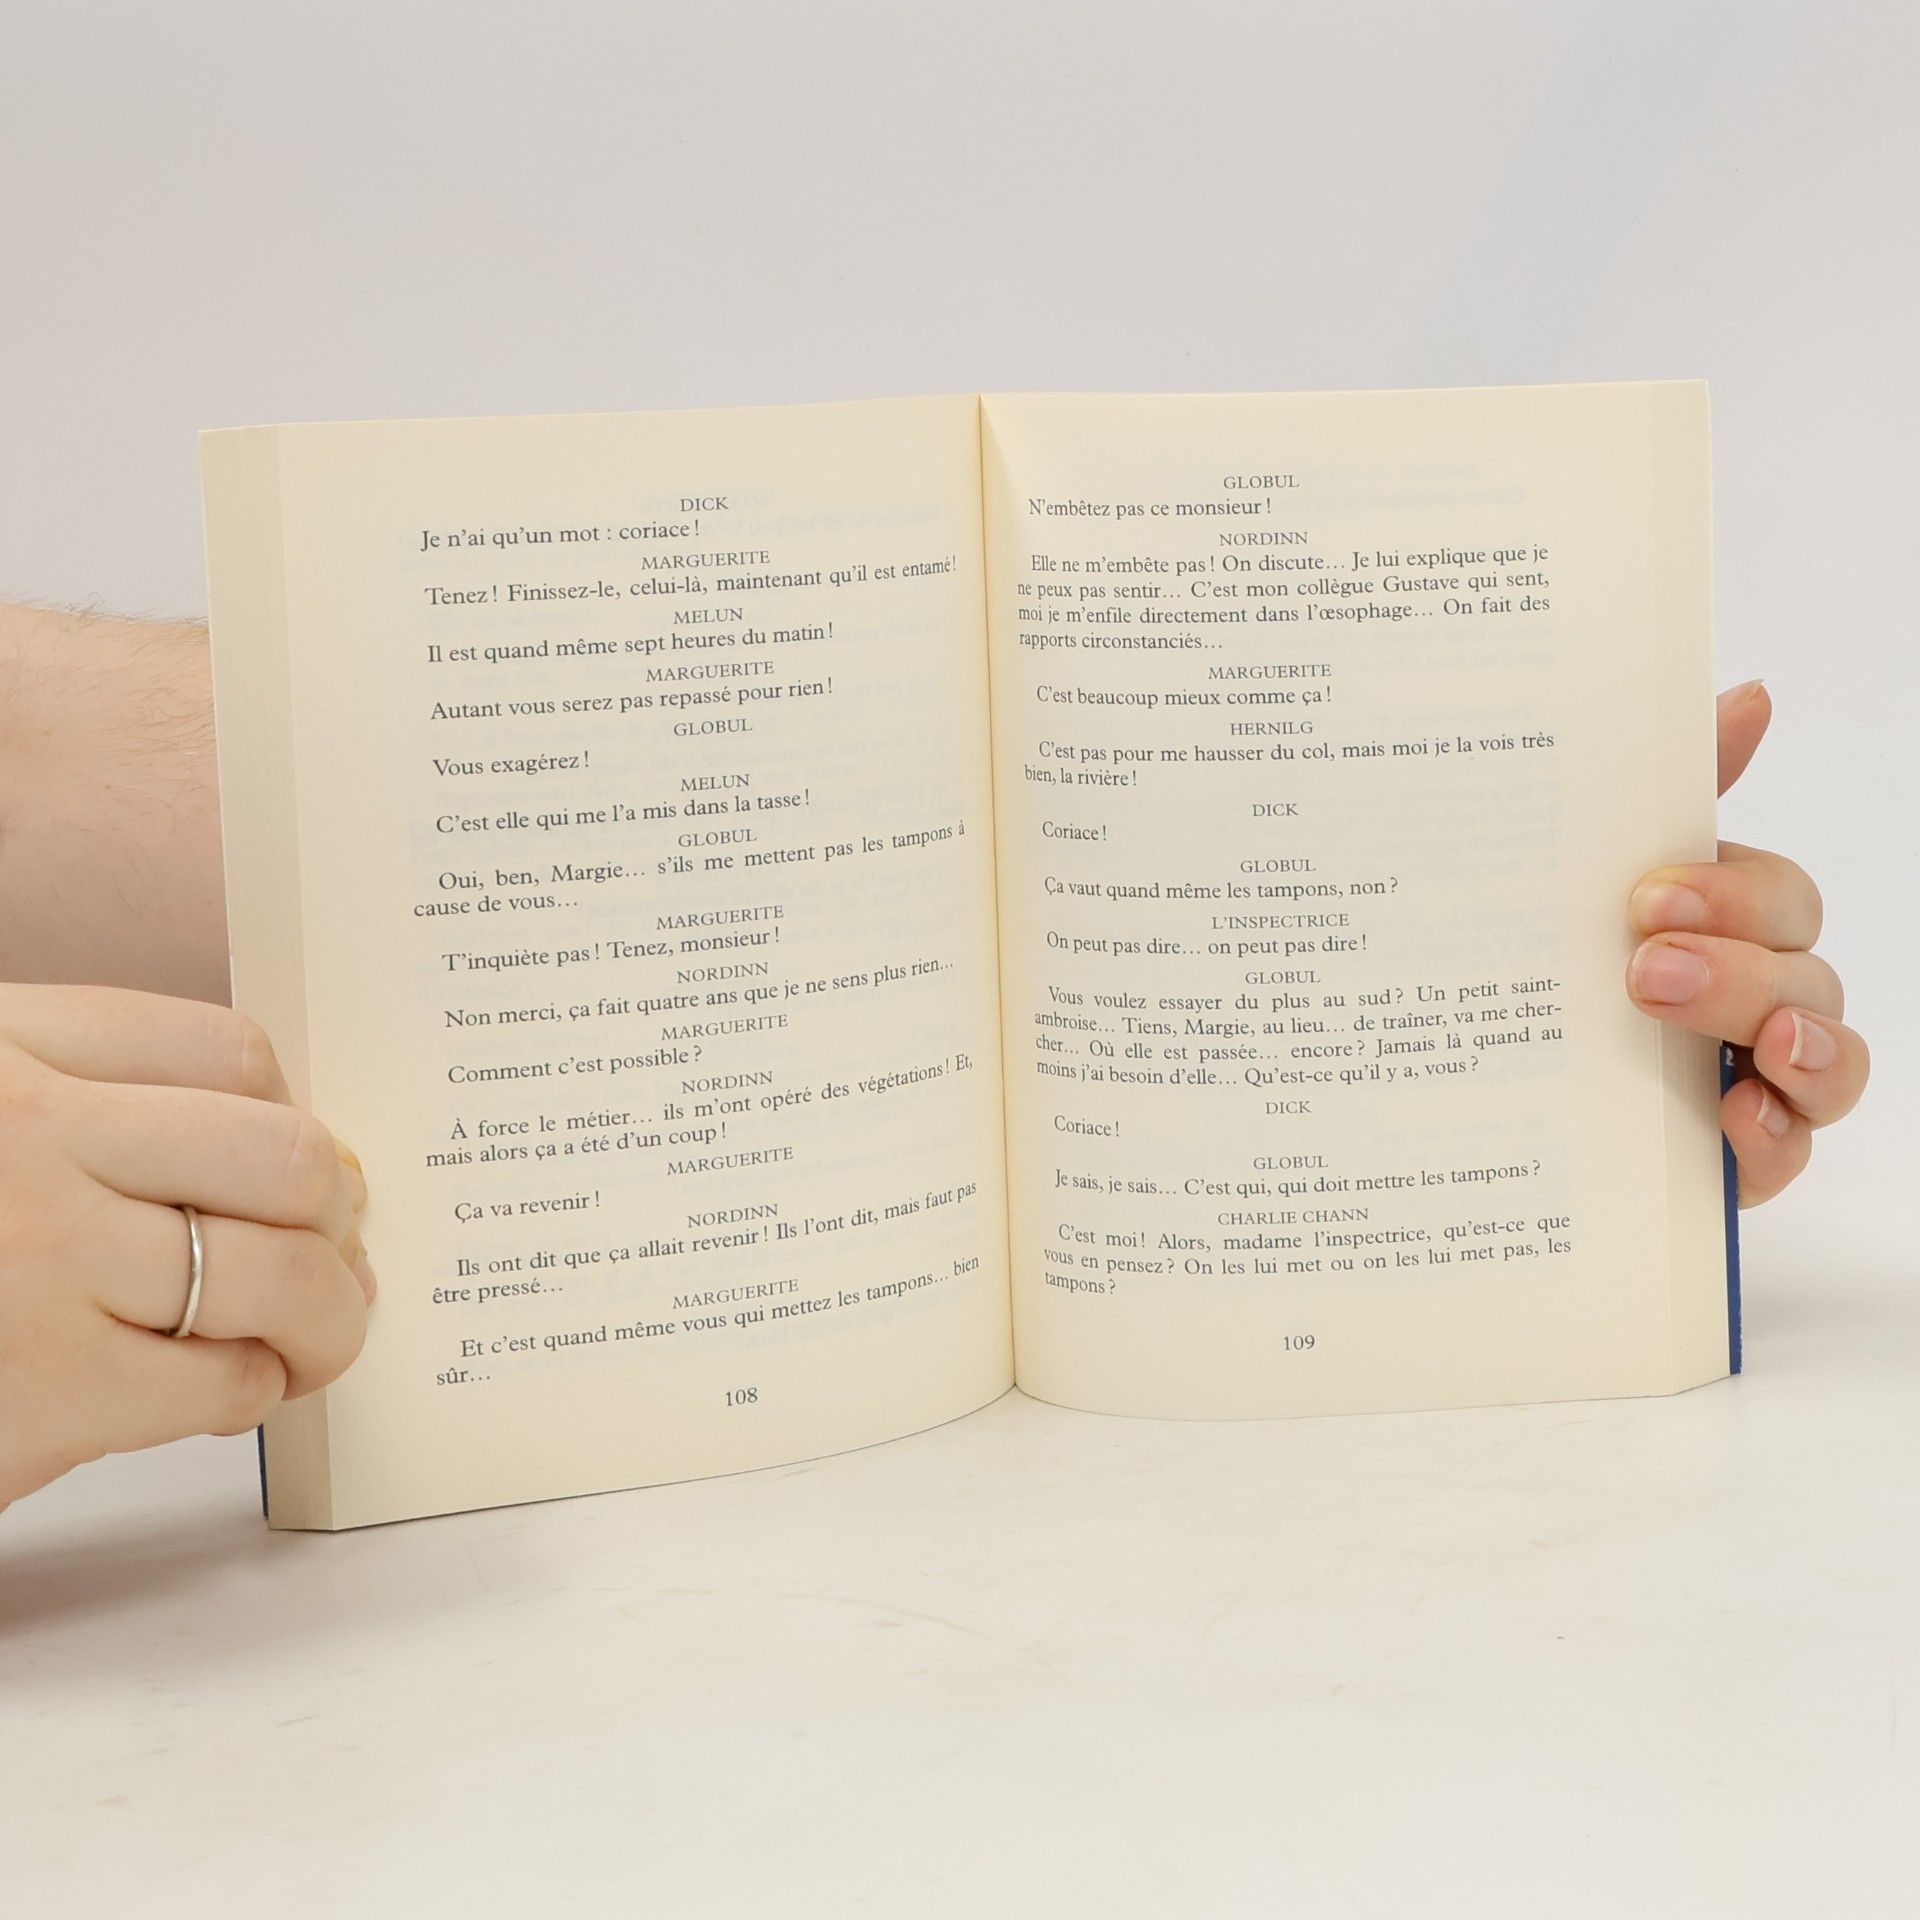 DICK
Je n’ai qu’un mot : coriace !
MARGUERITE
Tenez ! Finissez-le, celui-là, maintenant qu’il est entamé !
MELUN
Il est quand même sept heures du matin !
MARGUERITE
Autant vous serez pas repassé pour rien !
GLOBUL
Vous exagérez !
MELUN
C’est elle qui me l’a mis dans la tasse !
GLOBUL
Oui, ben, Margie… s’ils me mettent pas les tampons à
cause de vous…
MARGUERITE
T’inquiète pas ! Tenez, monsieur !
NORDINN
Non merci, ça fait quatre ans que je ne sens plus rien…
MARGUERITE
Comment c’est possible ?
NORDINN
À force le métier… ils m’ont opéré des végétations ! Et,
mais alors ça a été d’un coup !
MARGUERITE
Ça va revenir !
NORDINN
Ils ont dit que ça allait revenir ! Ils l’ont dit, mais faut pas
être pressé…
MARGUERITE
Et c’est quand même vous qui mettez les tampons… bien
sûr…
108
GLOBUL
N’embêtez pas ce monsieur !
NORDINN
Elle ne m’embête pas ! On discute… Je lui explique que je
ne peux pas sentir… C’est mon collègue Gustave qui sent,
moi je m’enfile directement dans l’œsophage… On fait des
rapports circonstanciés…
MARGUERITE
C’est beaucoup mieux comme ça !
HERNILG
C’est pas pour me hausser du col, mais moi je la vois très
bien, la rivière !
DICK
Coriace !
GLOBUL
Ça vaut quand même les tampons, non ?
L’INSPECTRICE
On peut pas dire… on peut pas dire !
GLOBUL
Vous voulez essayer du plus au sud ? Un petit saint-
ambroise… Tiens, Margie, au lieu… de traîner, va me cher-
cher… Où elle est passée… encore ? Jamais là quand au
moins j’ai besoin d’elle… Qu’est-ce qu’il y a, vous ?
DICK
Coriace !
GLOBUL
Je sais, je sais… C’est qui, qui doit mettre les tampons ?
CHARLIE CHANN
C’est moi ! Alors, madame l’inspectrice, qu’est-ce que
vous en pensez ? On les lui met ou on les lui met pas, les
tampons ?
109